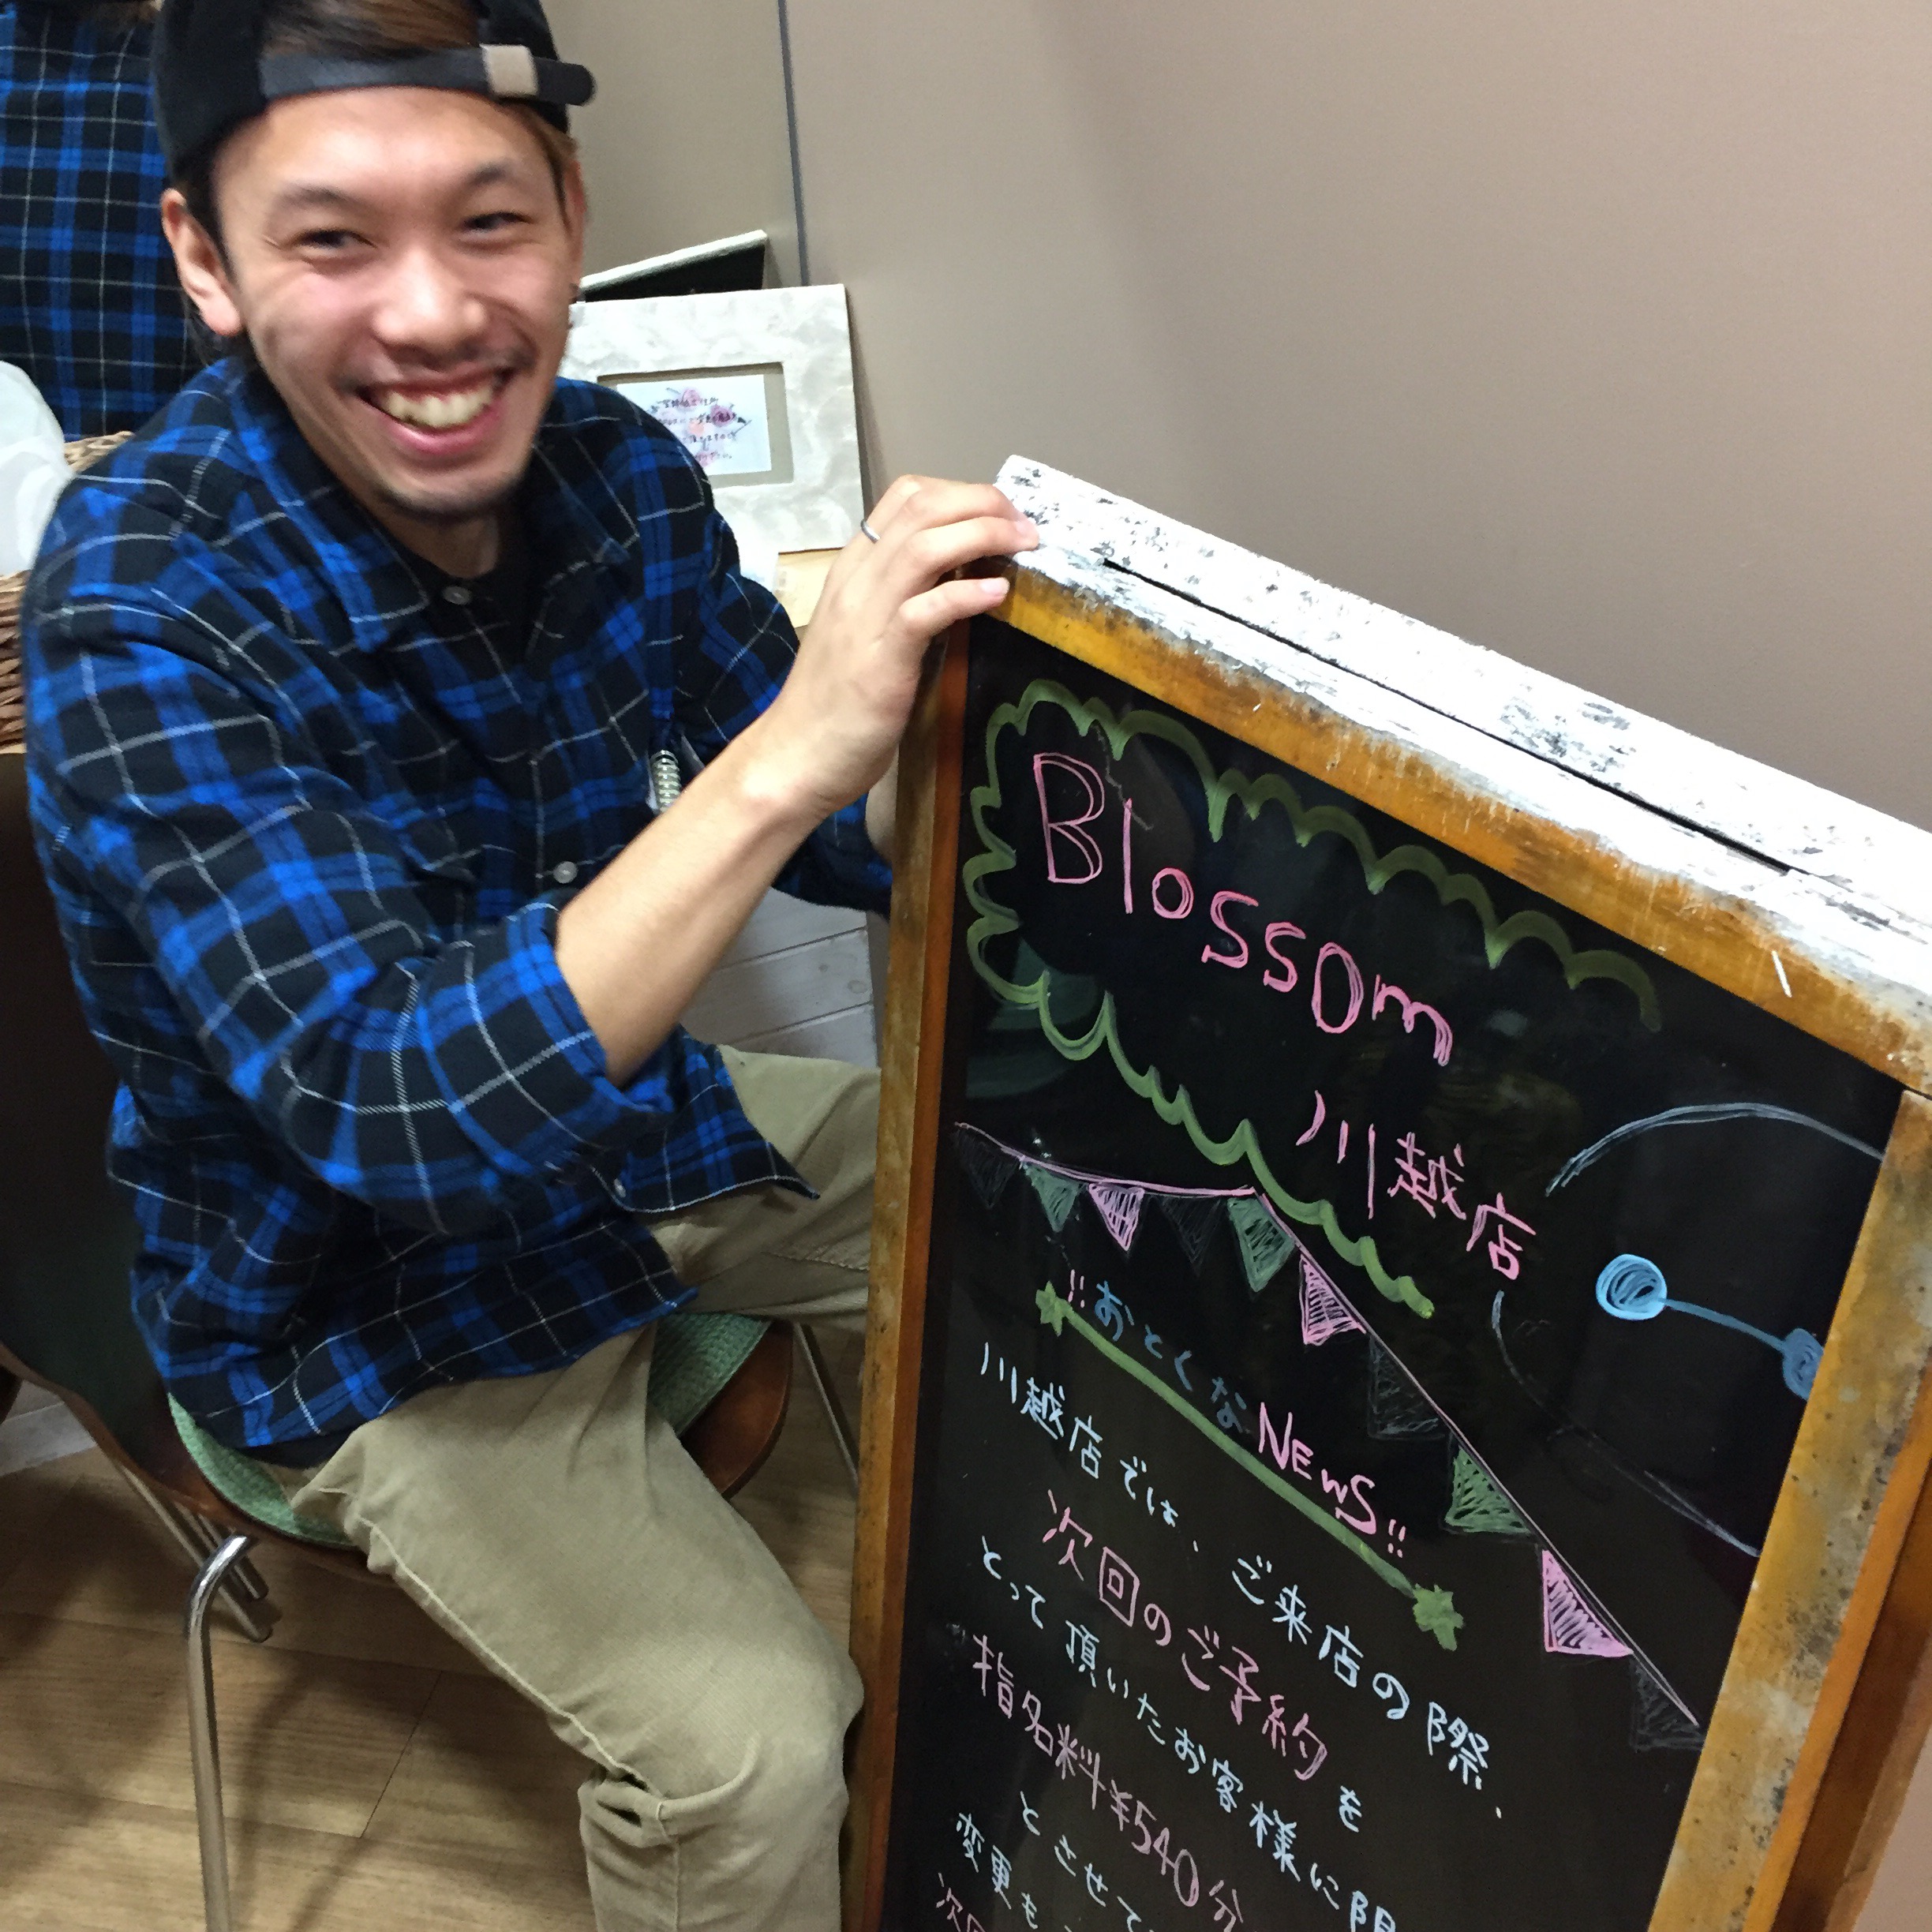 Blossom
川越店
!!おとくなNEWS!!
川越店では、ご来店の際、
次回のご予約を
とって頂いたお客様に限
指名料¥540分
とさせて
変更も
次回